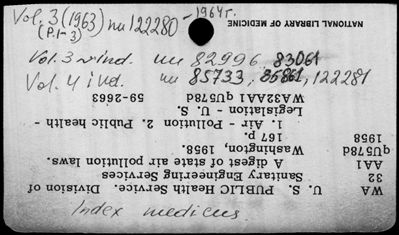 Vol. 3 (1963) nu 122280 - 1964г.
(P.1-3)
Vol. 3 ind. nu 82996, 83061
Vol. 4 ind. nu 85733, 85861, 122281
Index medicus
WA U. S. PUBLIC Health Service. Division of
32 Sanitary Engineering Services
AA1 A digest of state air pollution laws.
qU578d Washington, 1958.
1958 167 p.
1. Air - Pollution 2. Public health -
Legislation - U. S.
WA32AA1 qU578d 59-2663
NATIONAL LIBRARY OF MEDICINE